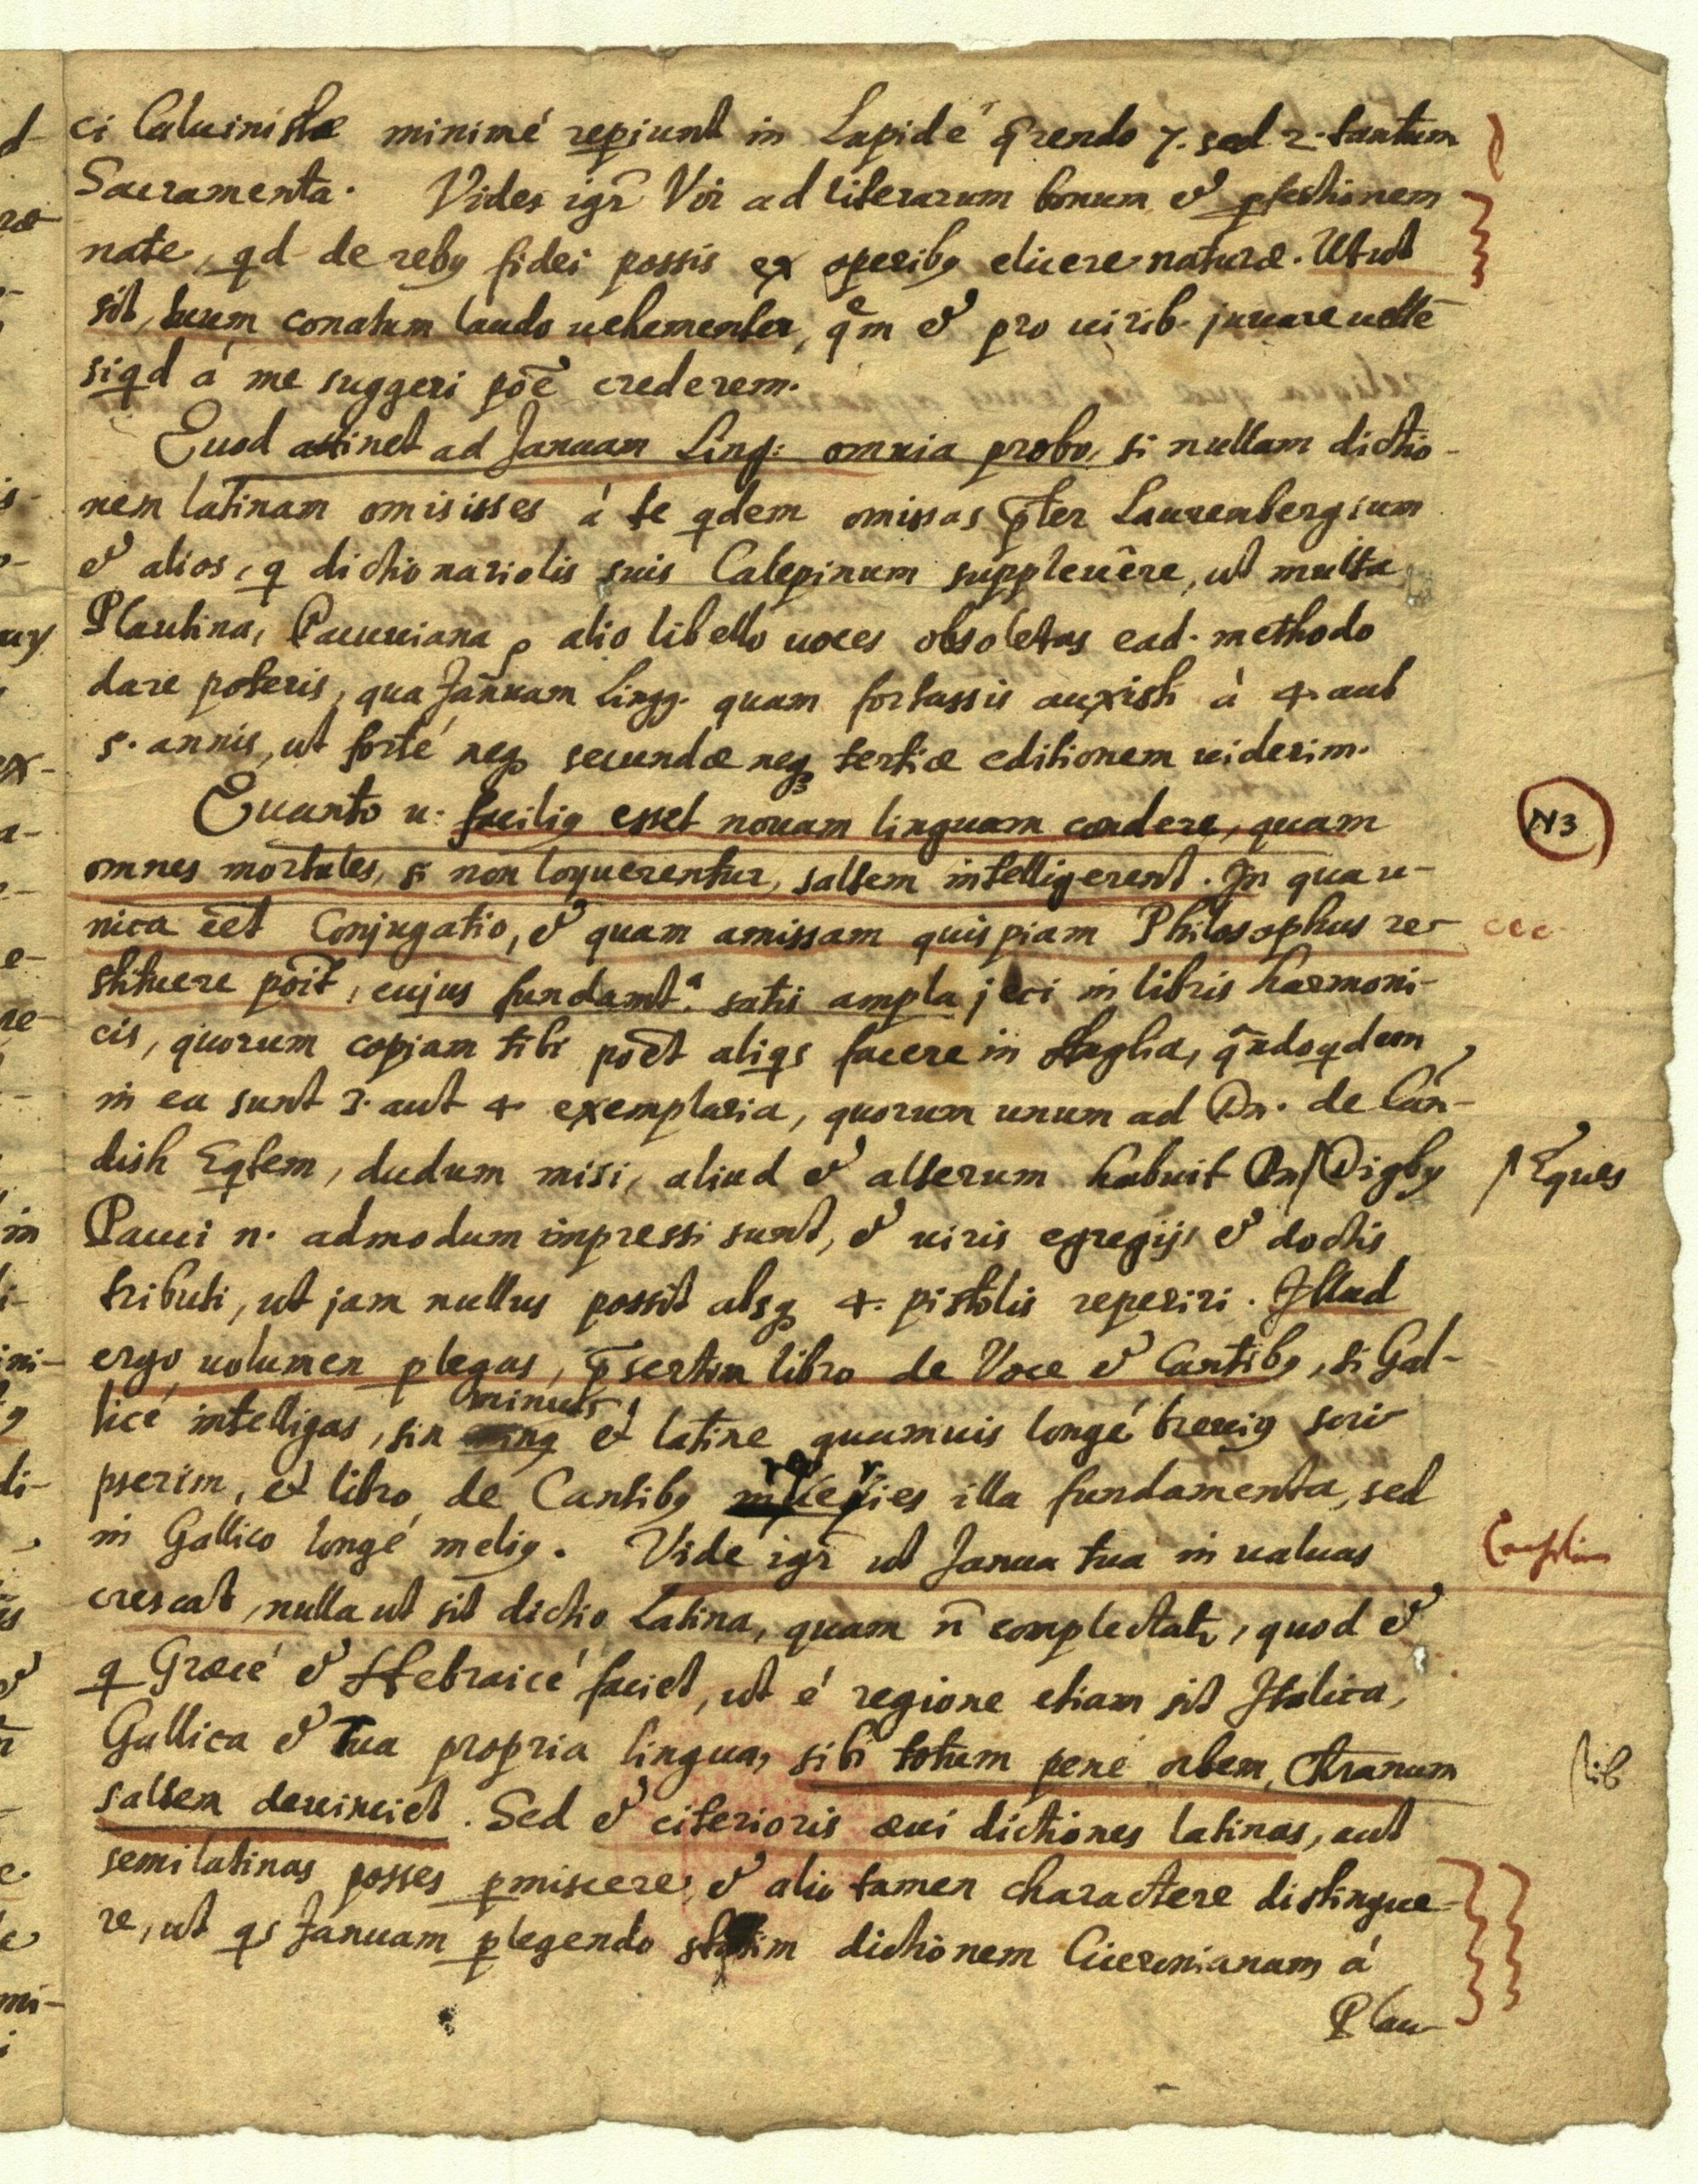 ci Calvinistæ minimé repiunt in Lapide qrendo 7. sed 2. tantum
Sacramenta. Vides igr̄ Vir ad literarum bonum & pfectionem
nate, qd de rebꝯ fidei possis ex operibꝯ elicere naturæ. Utut
sit, tuum conatum laudo uehementer, qm & pro uirib. juuare uellē
siqd á me suggeri poē crederem.
Quod attinet ad Januam Ling: omnia probo, si nullam dictio-
nem latinam omisisses á te qdem omissas pter Laurenbergium
& alios, q dictionariolis suis Calepinum suppleuêre, ut multa
Plautina, Pacuuiana, alio libello uoces obsoletas ead. methodo
dare poteris, qua Januam Lingg. quam fortassis auxisti à 4. aut
5. annis, ut forté neqꝫ secundæ neqꝫ tertiæ editionem uiderim.
Quanto u. faciliꝯ esset nouam linguam condere, quam
omnes mortales, si non loquerentur, saltem intelligerent. In qua u-
nica eēt Conjugatio, & quam amissam quispiam Philosophus re-
stituere poīt, cujus fundamt.a satis ampla jeci in libris harmoni-
cis, quorum copiam tibi poēt aliqs facere in Anglia, qndoqdem
in ea sunt 3. aut 4. exemplaria, quorum unum ad Dn. de Can-
dish Eqtem, dudum misi, aliud & alterum habuit Dn / Digby
/ Eques
Pauci n. admodum impressi sunt, & uiris egregijs & doctis
tributi, ut jam nullus possit absqꝫ 4. pistolis reperiri. Illud
ergo uolumen plegas, psertim libro de Voce & Cantibꝯ, si Gal-
licé intelligas, sin minus, et latine quamuis longé breuiꝯ scri-
pserim, et libro de Cantibꝯ reperies illa fundamenta, sed
in Gallico longé meliꝯ. Vide igr̄ ut Janua tua in ualuas
crescat, nulla ut sit dictio Latina, quam n̄ complectatr, quod &
q Græcé & Hebraicé faciet, ut é regione etiam sit Italica,
Gallica & Tua propria lingua, sibi totum pené orbem, Chr̄anum
saltem deuinciet. Sed & citerioris æui dictiones latinas, aut
semilatinas posses pmiscere, & alio tamen charactere distingue-
re, ut qs Januam plegendo statim dictionem Ciceronianam á
Plau-
N3
ccc